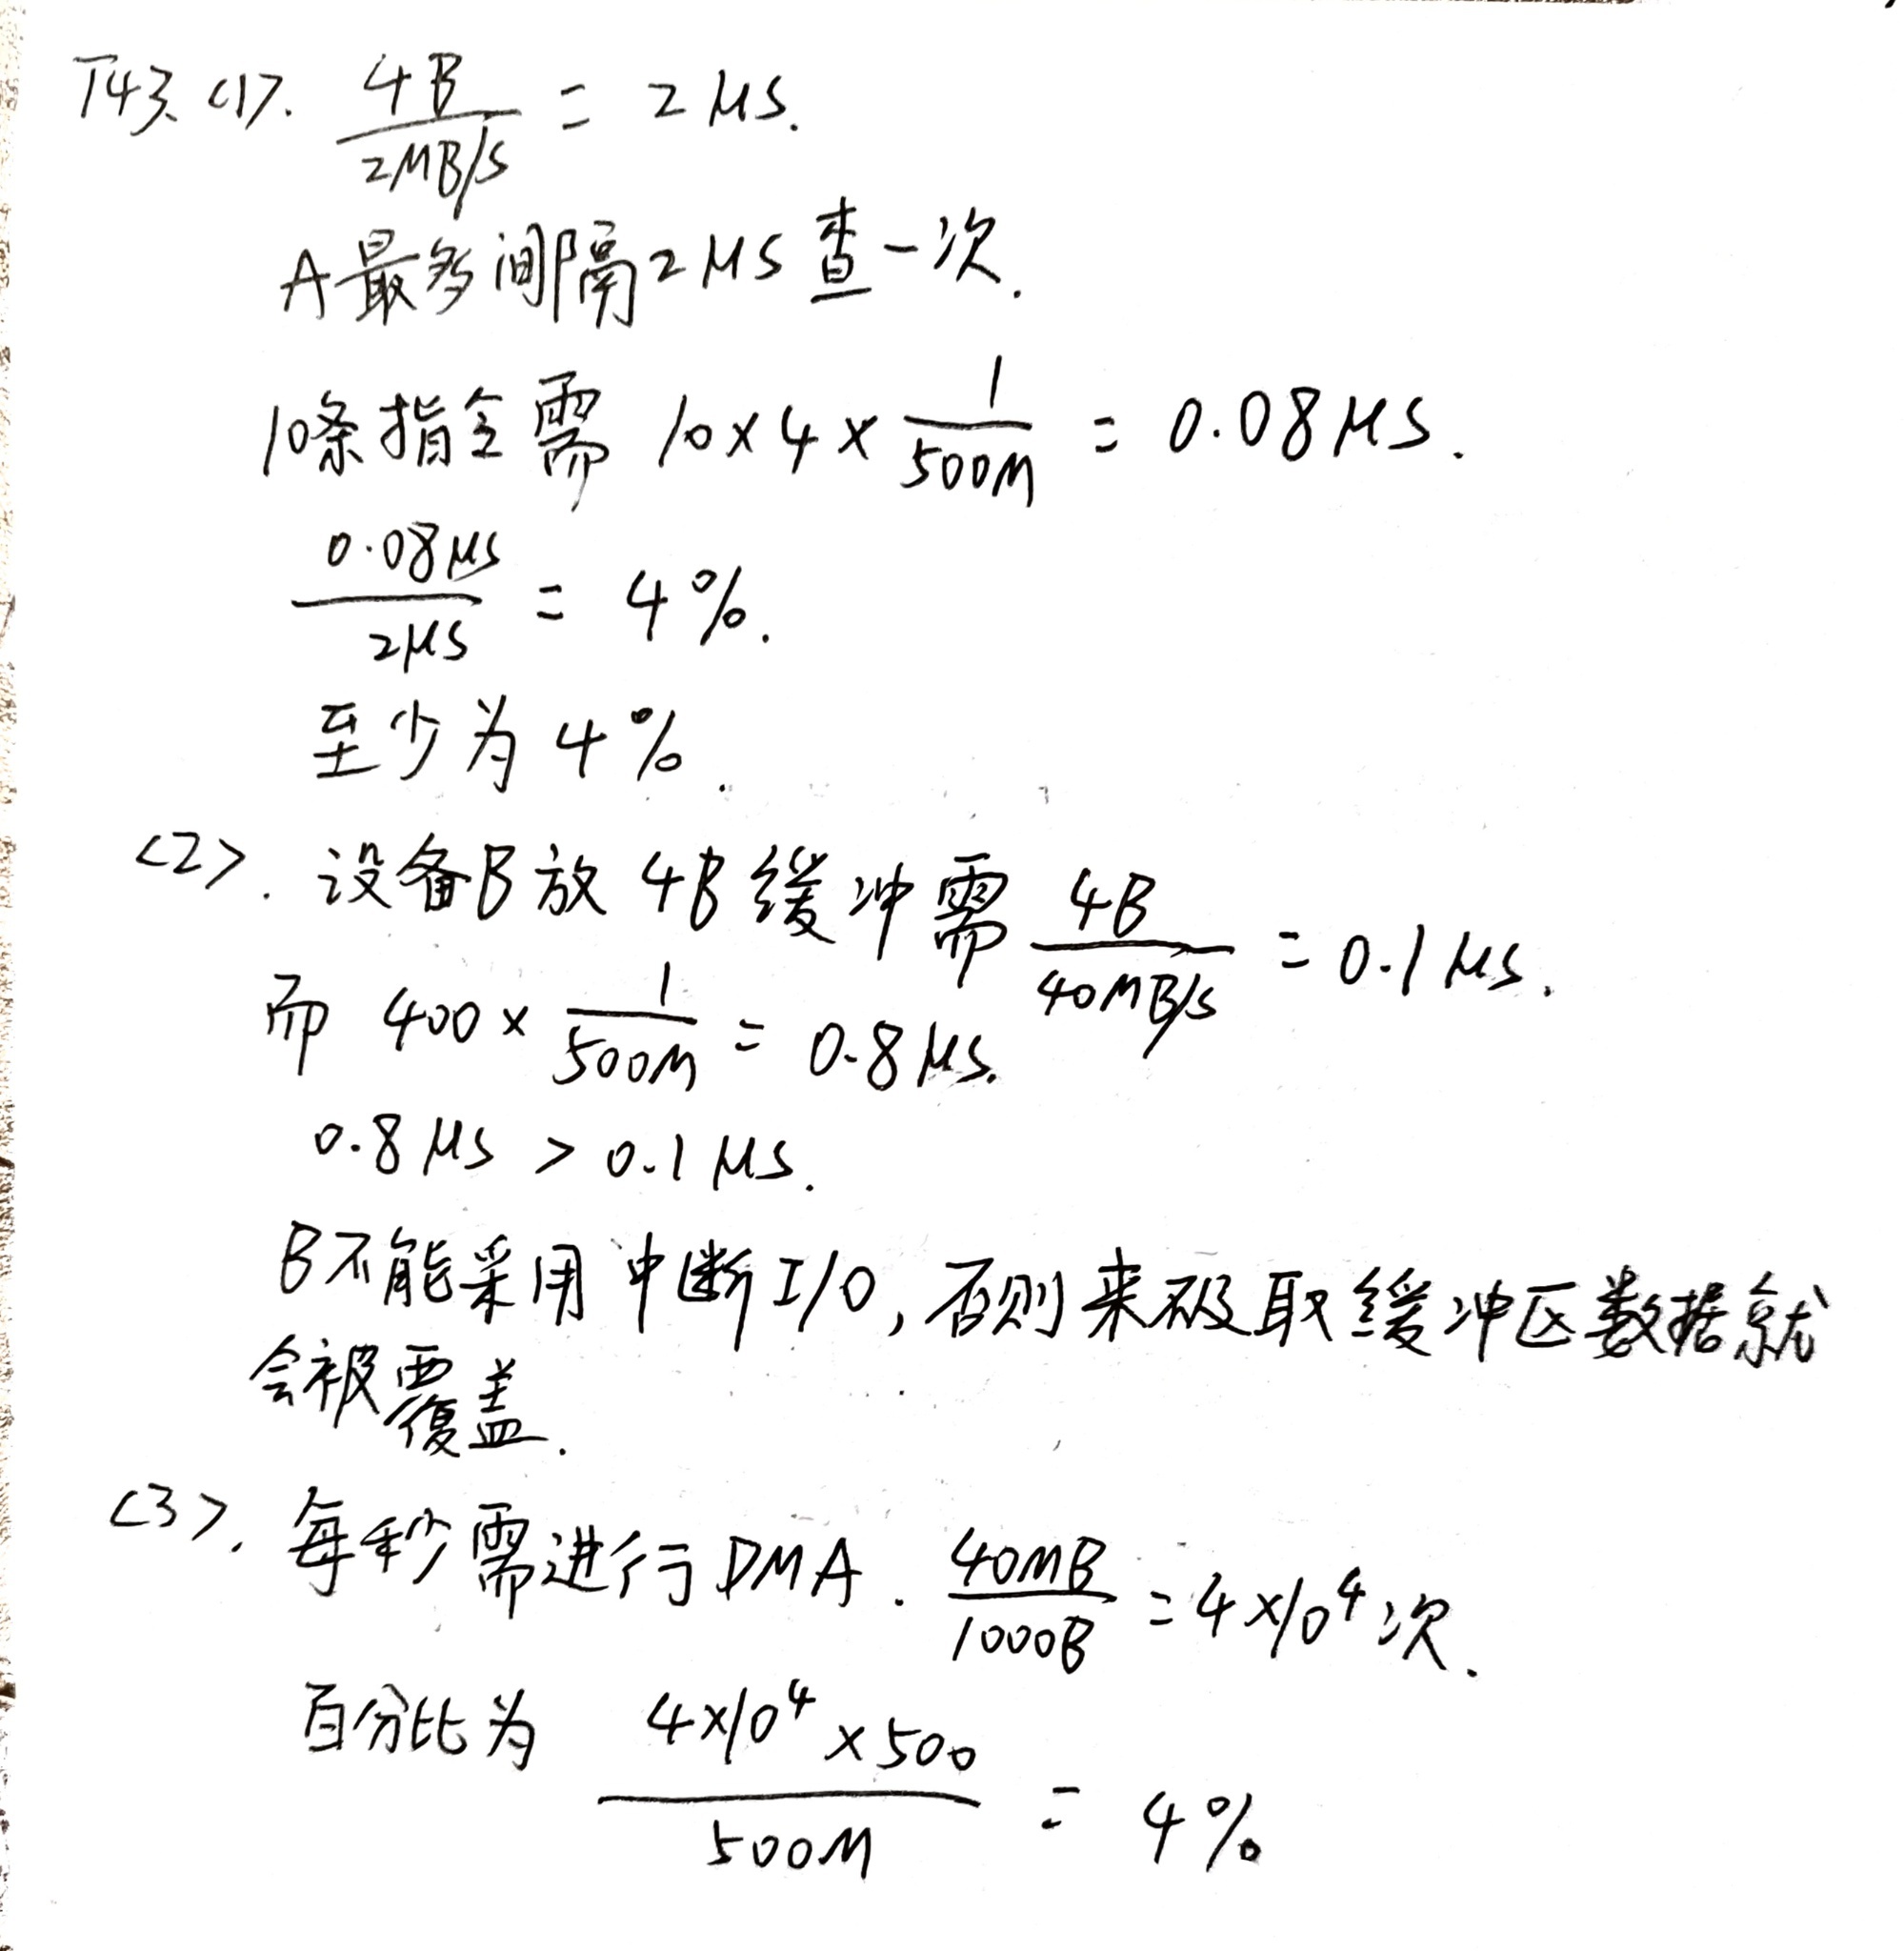 T43、<1>. 4B / 2MB/s = 2μs.
A最多间隔2μs查一次.
10条指令需 10×4×1/500M = 0.08μs.
0.08μs / 2μs = 4%.
至少为4%.
<2>. 设备B放4B缓冲需 4B / 40MB/s = 0.1μs.
而 400×1/500M = 0.8μs.
0.8μs > 0.1μs.
B不能采用中断I/O,否则来不及取缓冲区数据就
会被覆盖.
<3>. 每秒需进行DMA. 40MB / 1000B = 4×10⁴次.
百分比为 4×10⁴×500 / 500M = 4%